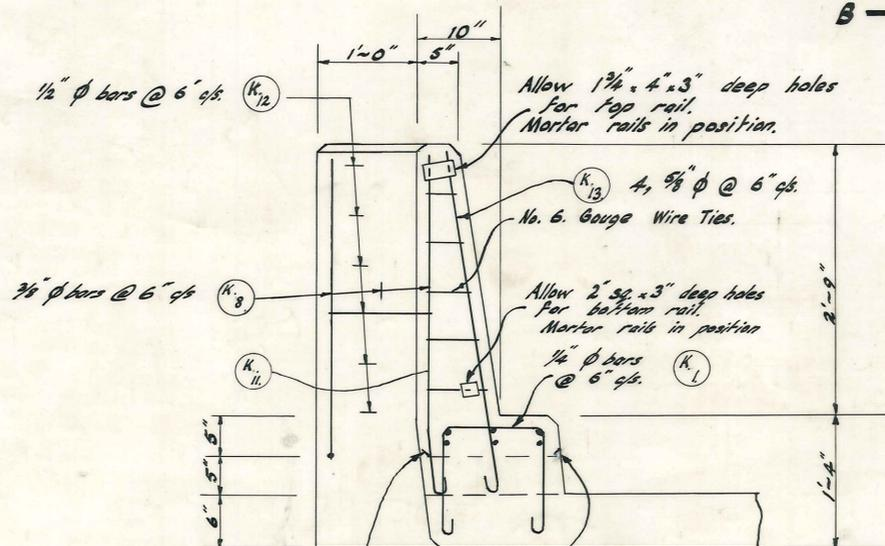 B -
10"
1'-0"
5"
1/2" Φ bars @ 6" c/s.
K.12
Allow 1 3/4" x 4" x 3" deep holes
for top rail.
Mortar rails in position.
K.13.
4, 5/8" Φ @ 6" c/s.
No. 6. Gouge Wire Ties.
3/8" Φ bars @ 6" c/s
K.8.
Allow 2" sq. x 3" deep holes
for bottom rail.
Mortar rails in position
2'-9"
K.11.
1/4" Φ bars
@ 6" c/s.
K.1.
5"
5"
6"
1'-4"